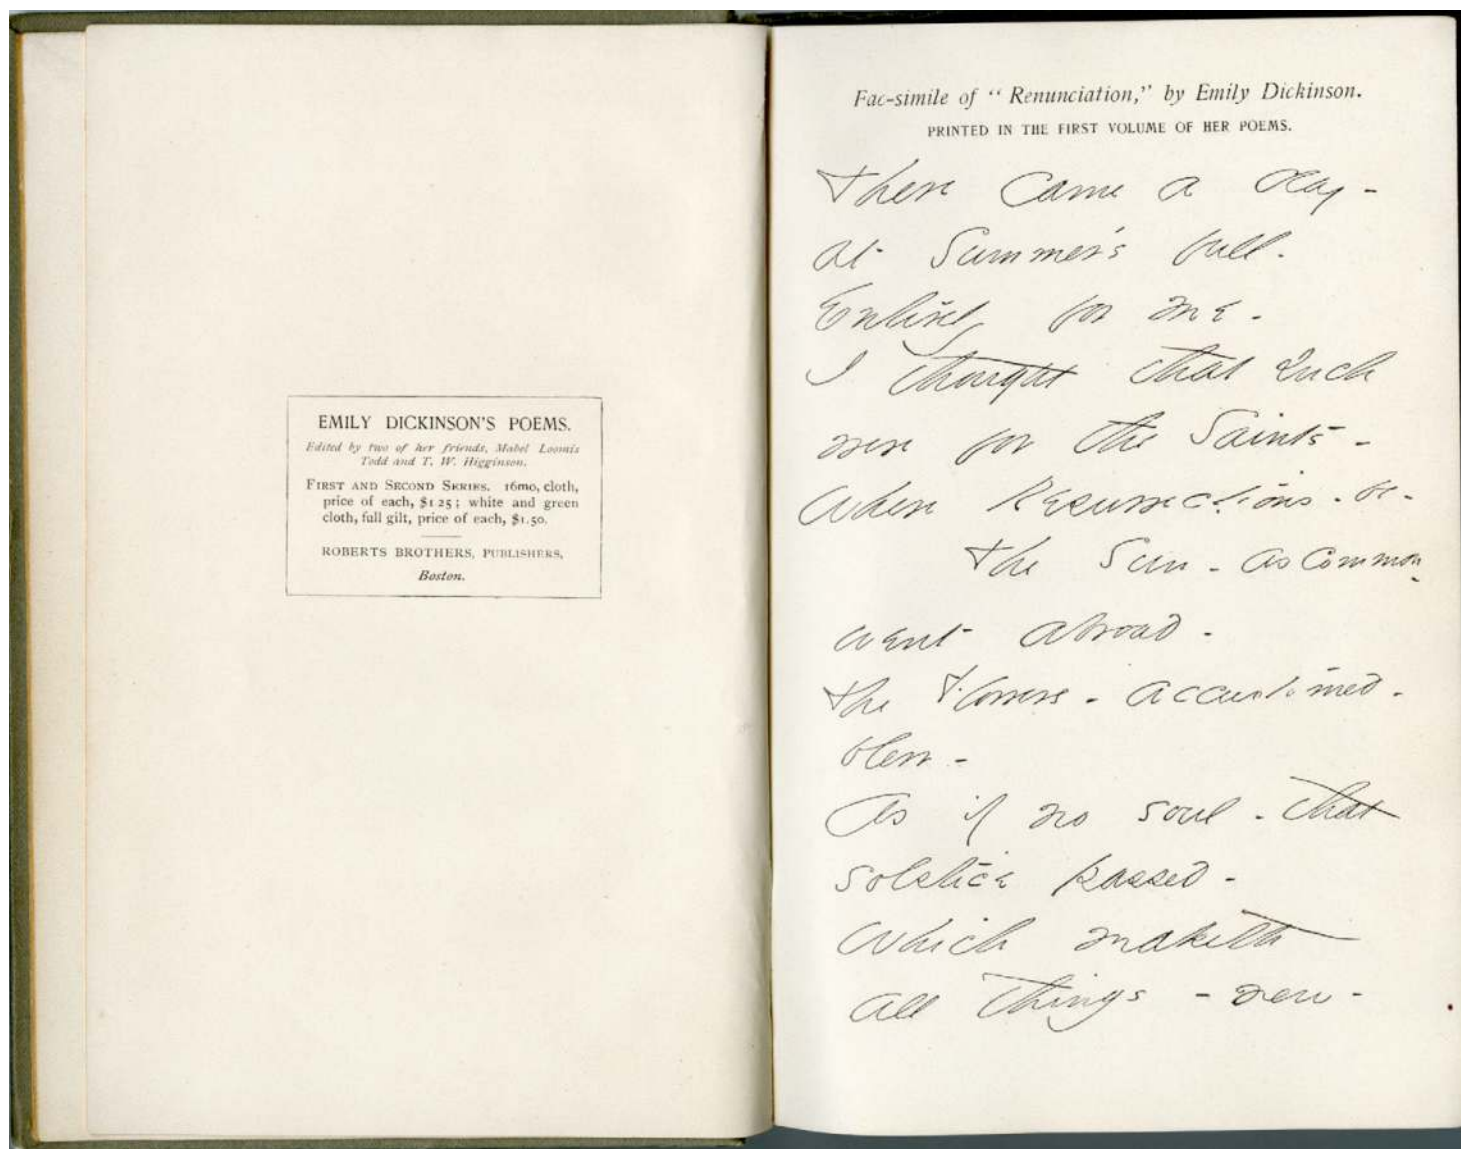 EMILY DICKINSON'S POEMS.
Edited by two of her friends, Mabel Loomis
Todd and T. W. Higginson.
FIRST AND SECOND SERIES. 16mo, cloth,
price of each, $1 25; white and green
cloth, full gilt, price of each, $1.50.
ROBERTS BROTHERS, PUBLISHERS,
Boston.
Fac-simile of "Renunciation," by Emily Dickinson.
PRINTED IN THE FIRST VOLUME OF HER POEMS.
There came a day -
at Summer's full.
Entirely for me -
I thought that such
were for the Saints -
Where Resurrections - be -
The Sun - as common -
went abroad -
The Flowers - accustomed -
blew -
As if no soul - that
solstice passed -
Which maketh
all things - new -